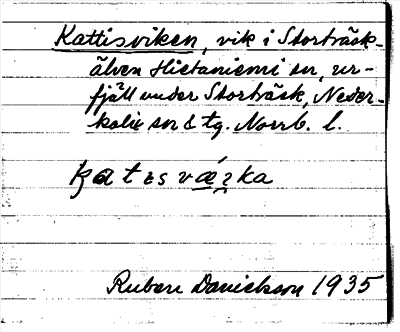 Kattisviken, vik i Storträsk-
älven Hietaniemi sn, ur-
fjäll under Storträsk, Neder-
kalix sn & tg. Norrb. l.
Ruben Danielsson 1935